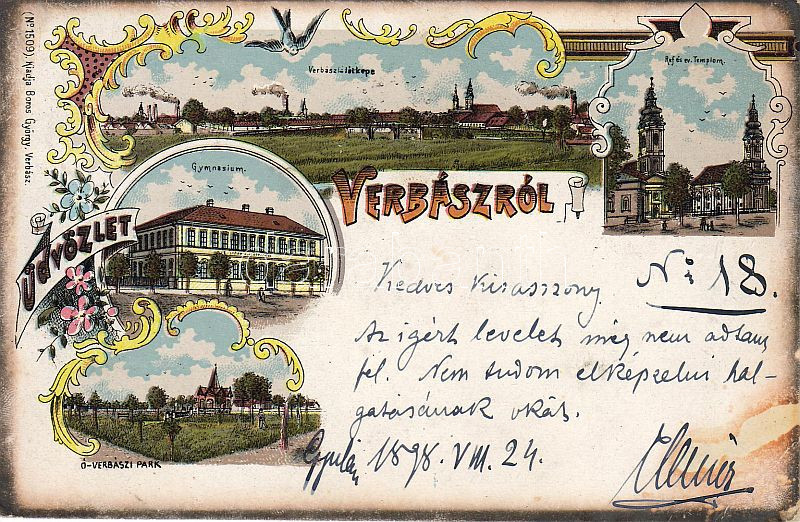 (No 1509) Kiadja Boros György, Verbász.
Verbászi látképe
Ref. és ev. Templom.
Gymnasium.
ÜDVÖZLET
VERBÁSZRÓL
Ó-VERBÁSZI PARK
No 18.
Kedves Kisasszony
Az igért levelet még nem adtam
fel. Nem tudom elképzelni hal-
gatásának okát.
1898. VIII. 24.